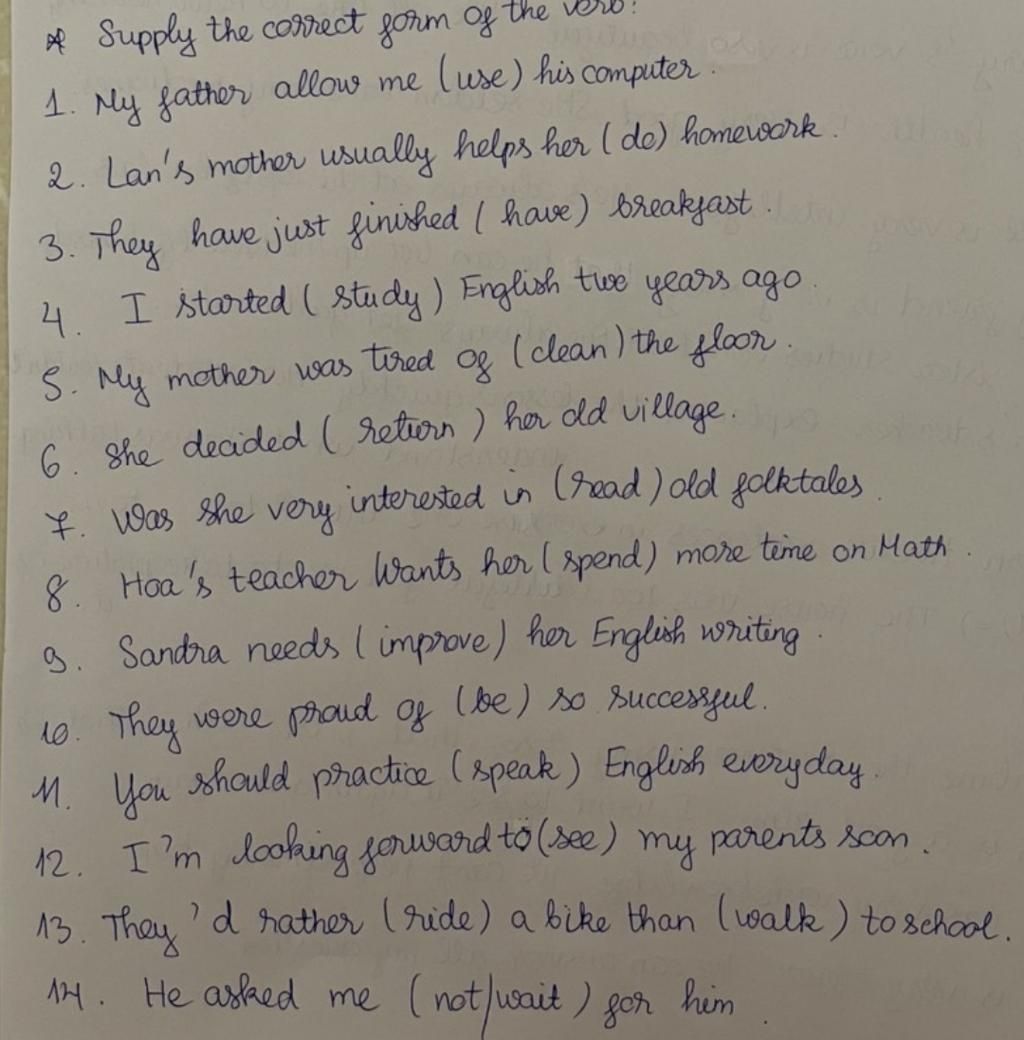 * Supply the correct form of the verb:
1. My father allow me (use) his computer.
2. Lan's mother usually helps her (do) homework.
3. They have just finished (have) breakfast.
4. I started (study) English two years ago.
5. My mother was tired of (clean) the floor.
6. She decided (return) her old village.
7. Was she very interested in (read) old folktales.
8. Hoa's teacher Wants her (spend) more time on Math.
9. Sandra needs (improve) her English writing.
10. They were proud of (be) so successful.
11. You should practice (speak) English everyday.
12. I'm looking forward to (see) my parents soon.
13. They'd rather (ride) a bike than (walk) to school.
14. He asked me (not/wait) for him.